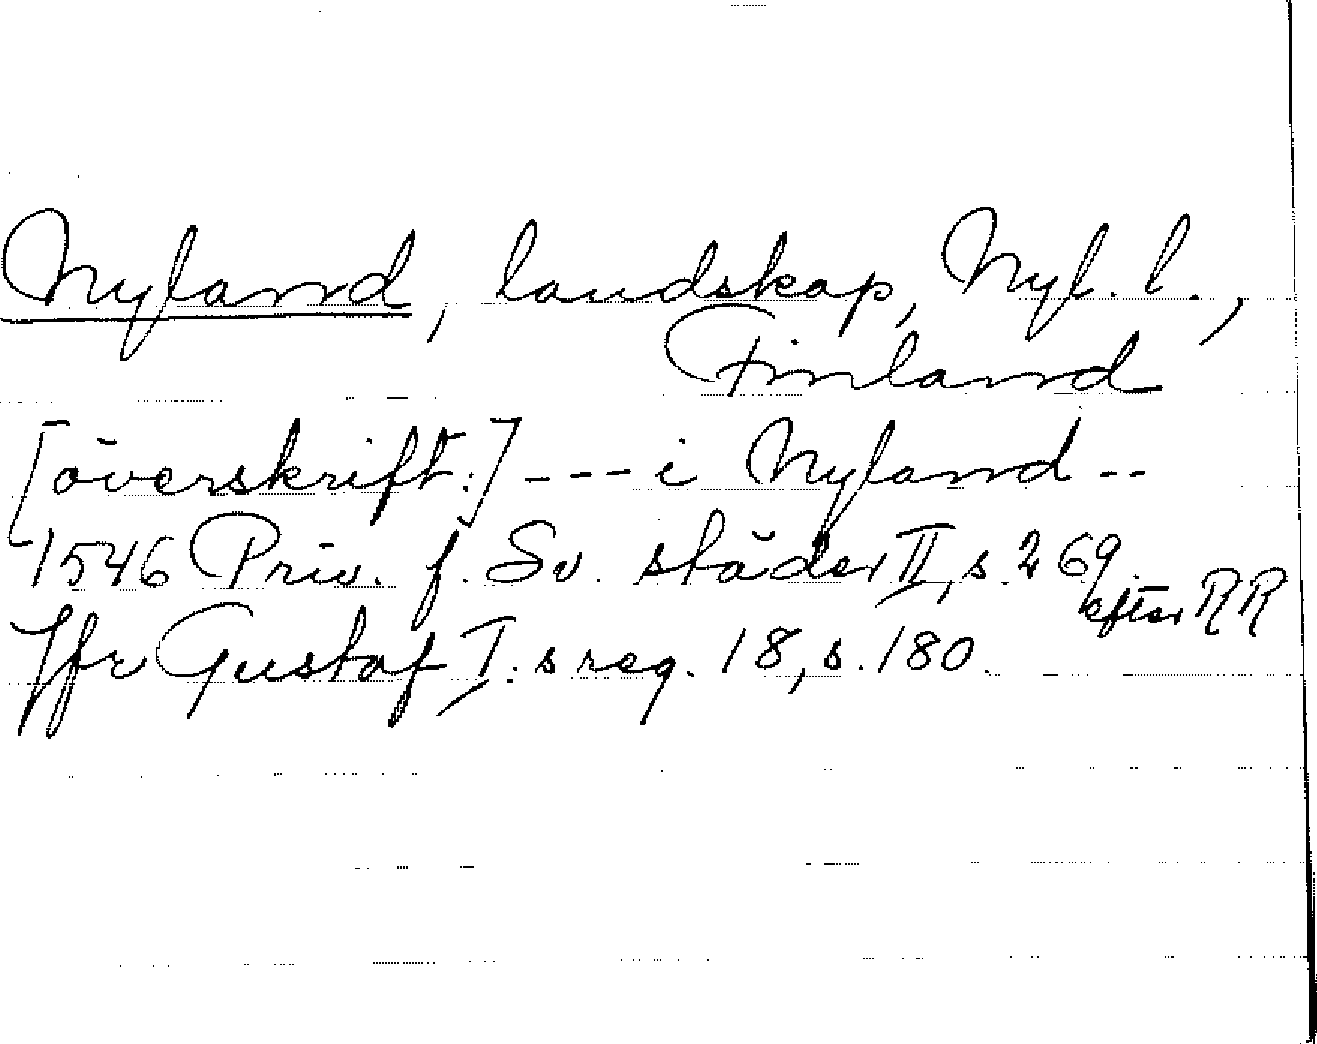 Nyland, landskap, Nyl. l.,
Finland
[överskrift:] --- i Nyland --
1546 Priv. f. Sv. städer II, s. 269
efter RR
Jfr Gustaf I:s reg. 18, s. 180.